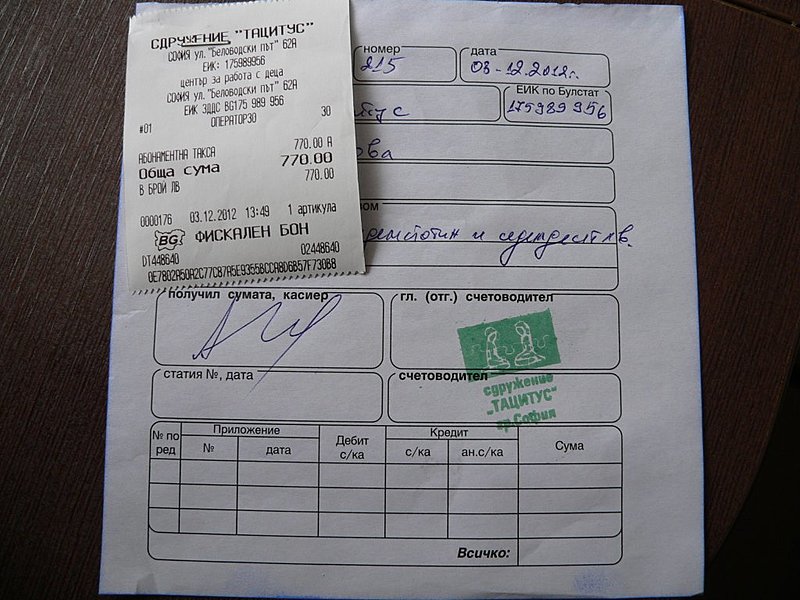 СДРУЖЕНИЕ "ТАЦИТУС"
СОФИЯ ул."Беловодски път" 62А
ЕИК: 175989956
център за работа с деца
СОФИЯ ул."Беловодски път" 62А
ЕИК ЗДДС BG175 989 956
#01 ОПЕРАТОР30 30
АБОНАМЕНТНА ТАКСА 770.00 А
Обща сума 770.00
В БРОЙ ЛВ 770.00
0000176 03.12.2012 13:49 1 артикула
BG ФИСКАЛЕН БОН
DT448640 02448640
0E7802A50A2C77C87A5E9355BCCABD6B57F730B8
номер
215
дата
03-12.2012г.
тус
ЕИК по Булстат
175989956
ова
ом
демстотин и седемдесет лв.
получил сумата, касиер
гл. (отг.) счетоводител
статия №, дата
счетоводител
сдружение
"ТАЦИТУС"
гр.София
№ по ред
Приложение
Дебит с/ка
Кредит
Сума
№
дата
с/ка
ан.с/ка
Всичко: